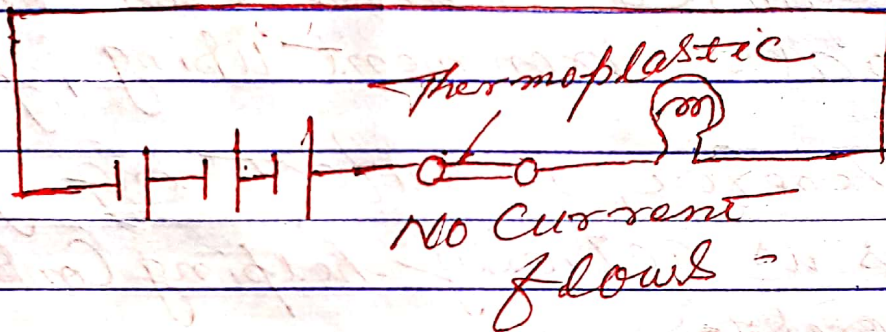 Thermoplastic
No Current
flows -